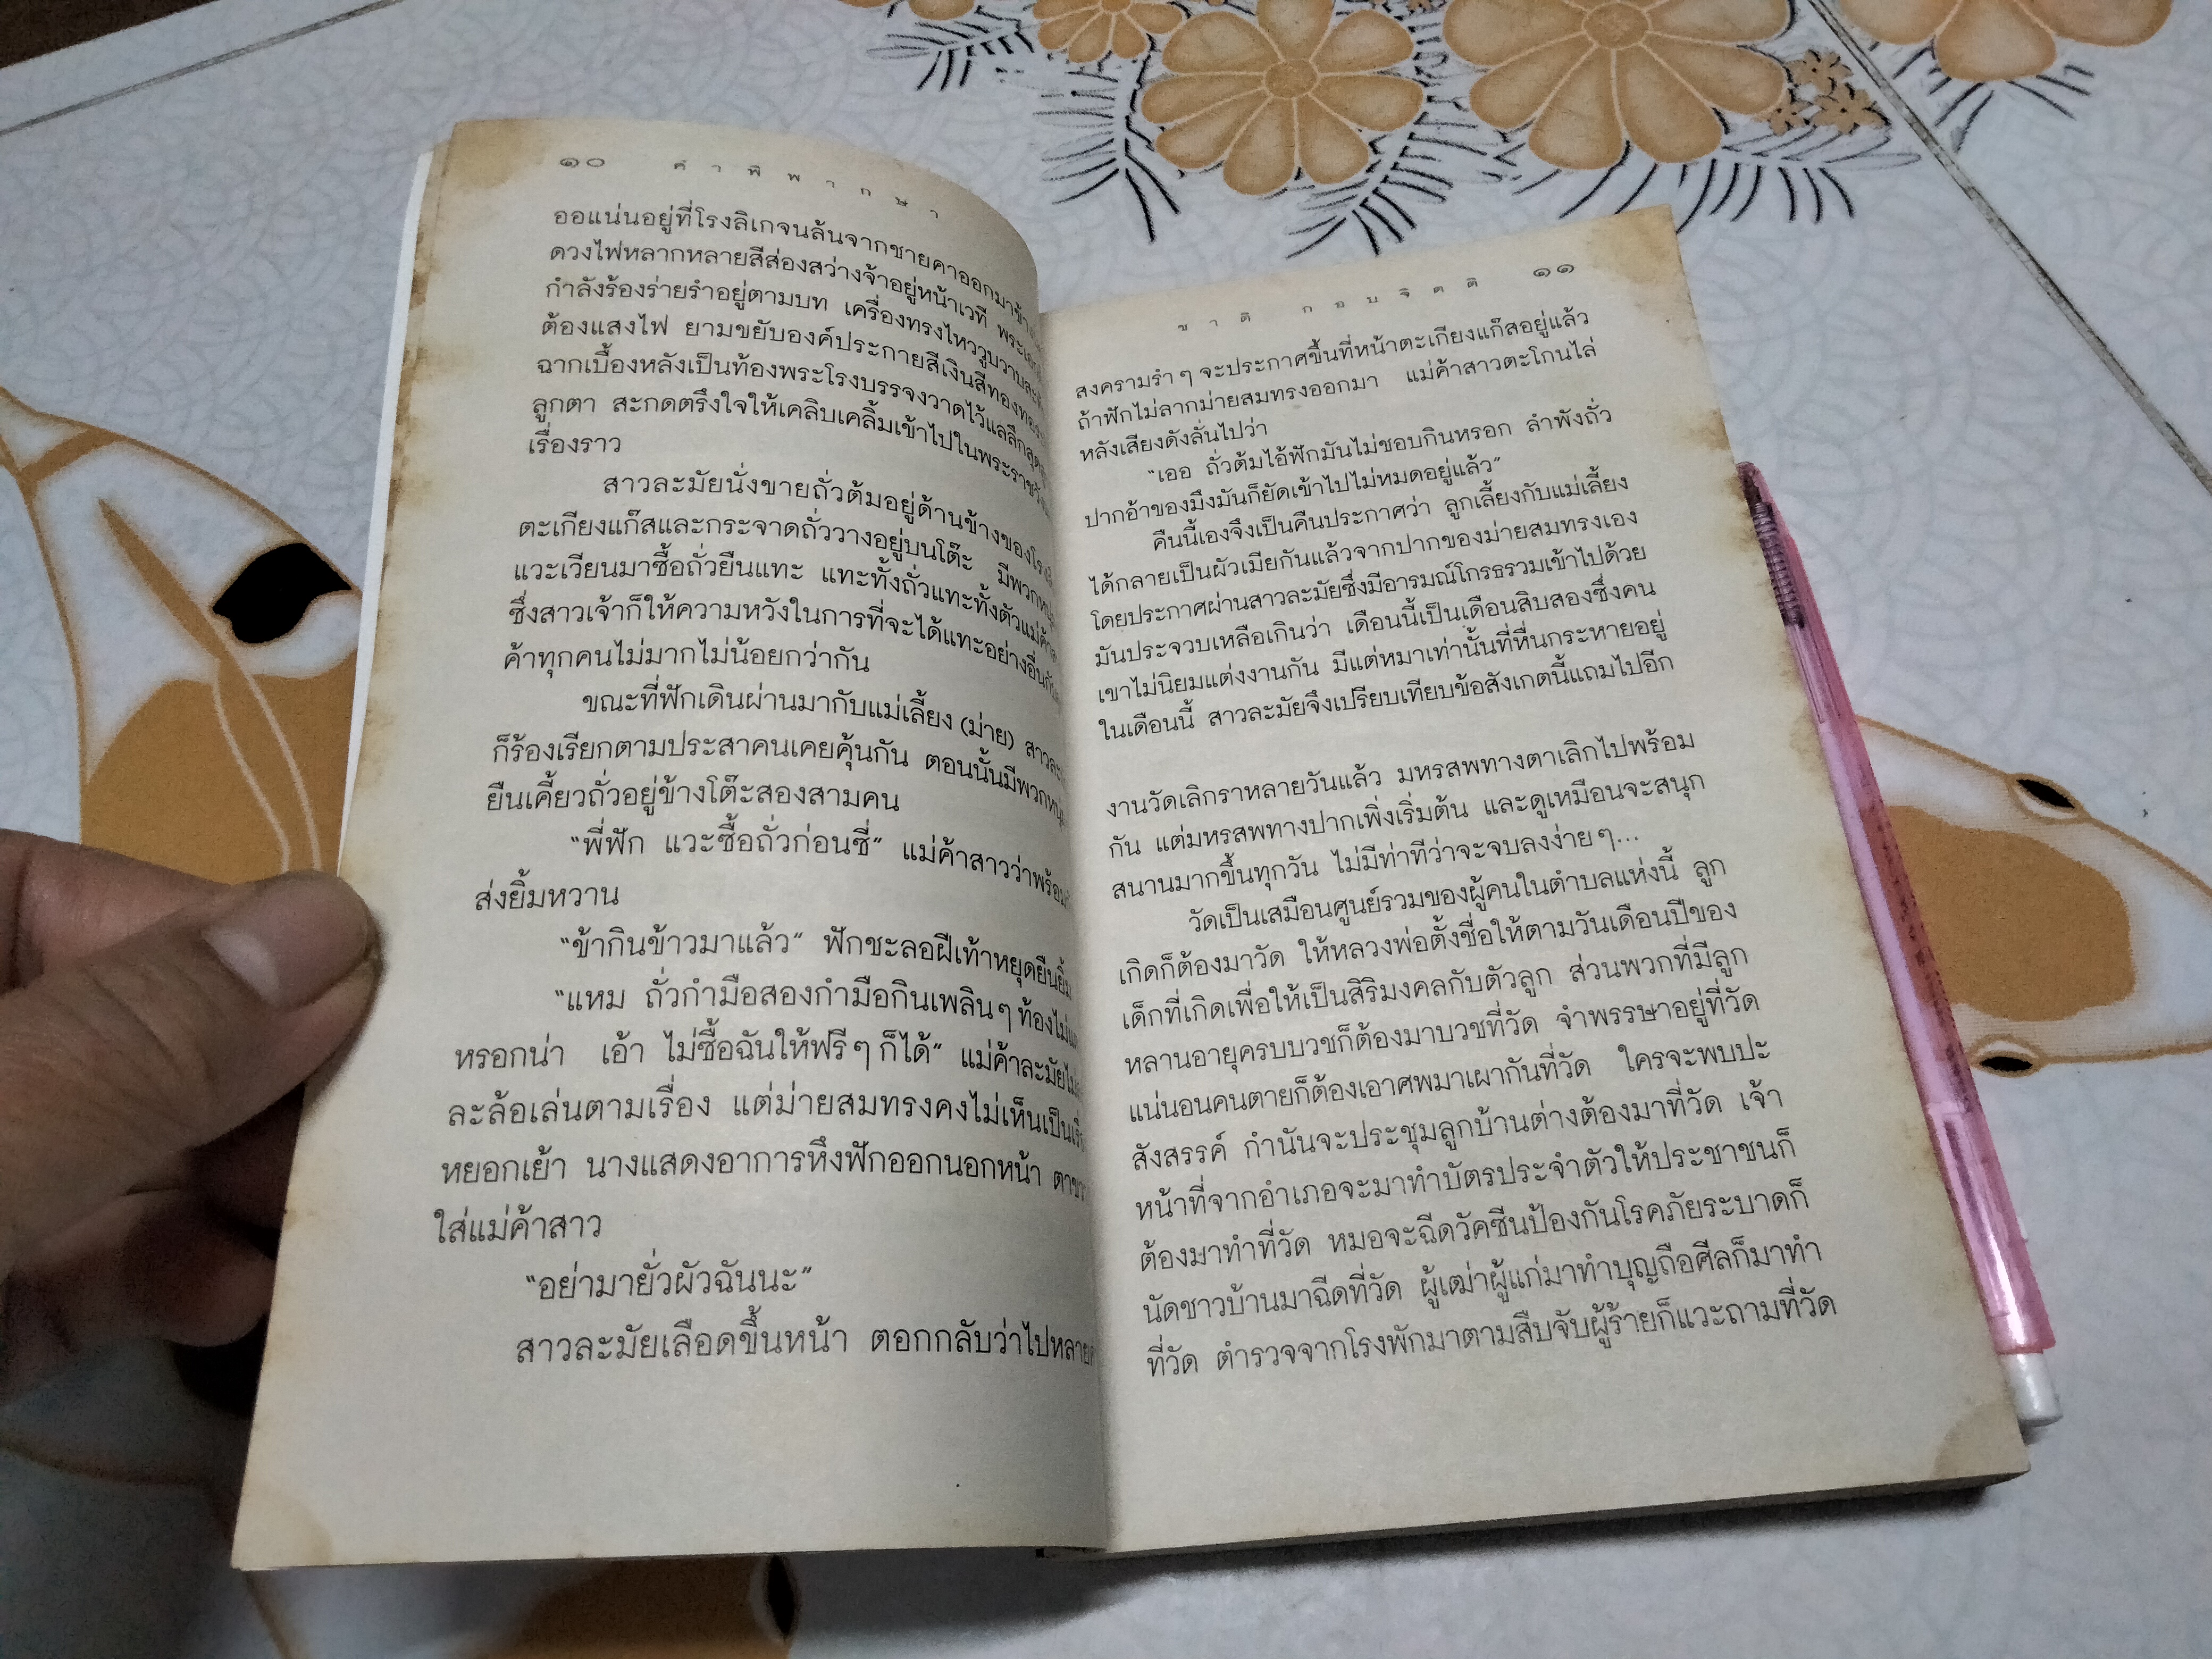 ๑๐ คำพิพากษา
ออแน่นอยู่ที่โรงลิเกจนล้นจากชายคาออกมาข้าง
ดวงไฟหลากหลายสีส่องสว่างจ้าอยู่หน้าเวที
กำลังร้องร่ายรำอยู่ตามบท เครื่องทรงไหววูบวาบ
ต้องแสงไฟ ยามขยับองค์ประกายสีเงินสีทอง
ฉากเบื้องหลังเป็นท้องพระโรงบรรจงวาดไว้แลลึก
ลูกตา สะกดตรึงใจให้เคลิบเคลิ้มเข้าไปใน
เรื่องราว
สาวละมัยนั่งขายถั่วต้มอยู่ด้านข้างของ
ตะเกียงแก๊สและกระจาดถั่ววางอยู่บนโต๊ะ
แวะเวียนมาซื้อถั่วยืนแทะ แทะทั้งถั่วแทะทั้งตัว
ซึ่งสาวเจ้าก็ให้ความหวังในการที่จะได้แทะอย่างอื่น
ค้าทุกคนไม่มากไม่น้อยกว่ากัน
ขณะที่ฟักเดินผ่านมากับแม่เลี้ยง (ม่าย)
ก็ร้องเรียกตามประสาคนเคยคุ้นกัน ตอนนั้น
ยืนเคี้ยวถั่วอยู่ข้างโต๊ะสองสามคน
“พี่ฟัก แวะซื้อถั่วก่อนซี่” แม่ค้าสาวว่าพร้อม
ส่งยิ้มหวาน
“ข้ากินข้าวมาแล้ว” ฟักชะลอฝีเท้าหยุดยืนยิ้ม
“แหม ถั่วกำมือสองกำมือกินเพลินๆ
หรอกน่า เอ้า ไม่ซื้อฉันให้ฟรีๆ ก็ได้” แม่ค้าละมัย
ละล้อเล่นตามเรื่อง แต่ม่ายสมทรงคงไม่เห็นเป็น
หยอกเย้า นางแสดงอาการหึงฟักออกนอกหน้า
ใส่แม่ค้าสาว
“อย่ามายั่วผัวฉันนะ”
สาวละมัยเลือดขึ้นหน้า ตอกกลับว่าไปหลาย
ชาติ กอบจิตติ ๑๑
สงครามรำๆ จะประกาศขึ้นที่หน้าตะเกียงแก๊สอยู่แล้ว
ถ้าฟักไม่ลากม่ายสมทรงออกมา แม่ค้าสาวตะโกนไล่
หลังเสียงดังลั่นไปว่า
“เออ ถั่วต้มไอ้ฟักมันไม่ชอบกินหรอก ลำพังถั่ว
ปากอ้าของมึงมันก็ยัดเข้าไปไม่หมดอยู่แล้ว”
คืนนี้เองจึงเป็นคืนประกาศว่า ลูกเลี้ยงกับแม่เลี้ยง
ได้กลายเป็นผัวเมียกันแล้วจากปากของม่ายสมทรงเอง
โดยประกาศผ่านสาวละมัยซึ่งมีอารมณ์โกรธรวมเข้าไปด้วย
มันประจวบเหลือเกินว่า เดือนนี้เป็นเดือนสิบสองซึ่งคน
เขาไม่นิยมแต่งงานกัน มีแต่หมาเท่านั้นที่หื่นกระหายอยู่
ในเดือนนี้ สาวละมัยจึงเปรียบเทียบข้อสังเกตนี้แถมไปอีก
งานวัดเลิกราหลายวันแล้ว มหรสพทางตาเลิกไปพร้อม
กัน แต่มหรสพทางปากเพิ่งเริ่มต้น และดูเหมือนจะสนุก
สนานมากขึ้นทุกวัน ไม่มีท่าทีว่าจะจบลงง่ายๆ...
วัดเป็นเสมือนศูนย์รวมของผู้คนในตำบลแห่งนี้ ลูก
เกิดก็ต้องมาวัด ให้หลวงพ่อตั้งชื่อให้ตามวันเดือนปีของ
เด็กที่เกิดเพื่อให้เป็นสิริมงคลกับตัวลูก ส่วนพวกที่มีลูก
หลานอายุครบบวชก็ต้องมาบวชที่วัด จำพรรษาอยู่ที่วัด
แน่นอนคนตายก็ต้องเอาศพมาเผากันที่วัด ใครจะพบปะ
สังสรรค์ กำนันจะประชุมลูกบ้านต่างต้องมาที่วัด เจ้า
หน้าที่จากอำเภอจะมาทำบัตรประจำตัวให้ประชาชนก็
ต้องมาทำที่วัด หมอจะฉีดวัคซีนป้องกันโรคภัยระบาดก็
นัดชาวบ้านมาฉีดที่วัด ผู้เฒ่าผู้แก่มาทำบุญถือศีลก็มาทำ
ที่วัด ตำรวจจากโรงพักมาตามสืบจับผู้ร้ายก็แวะถามที่วัด